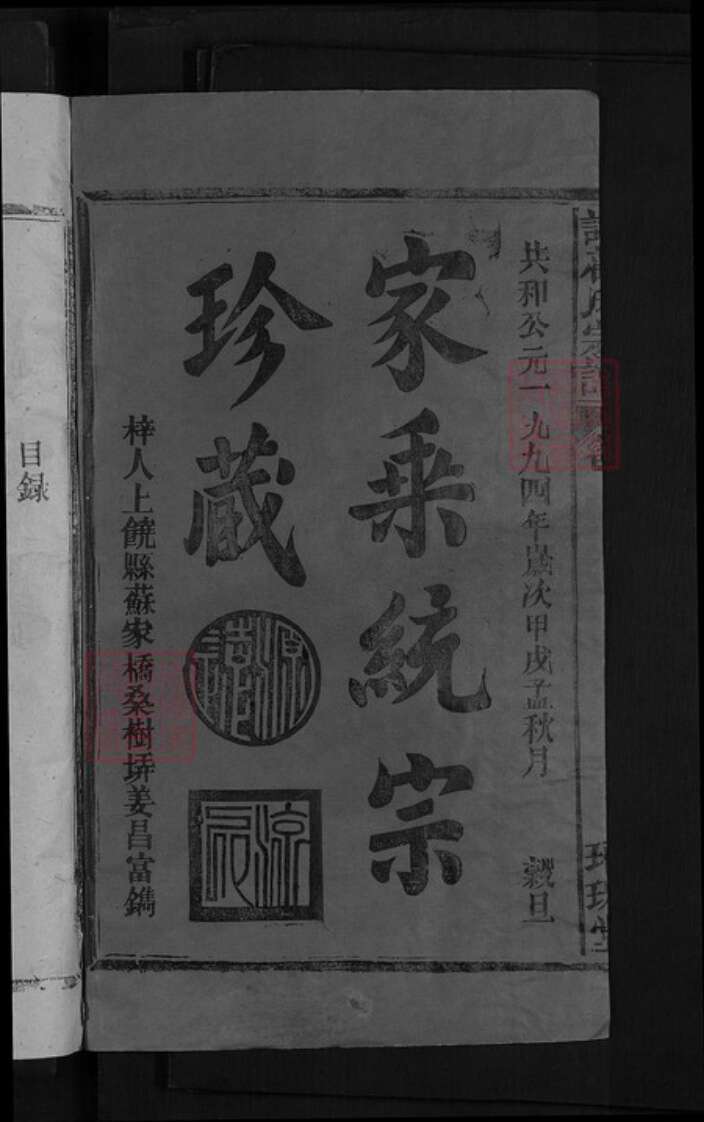 共和公元一九九四年歲次甲戌孟秋月 穀旦
家乘統宗
珍藏
梓人上饒縣蘇家橋桑樹垪姜昌富鐫
目録